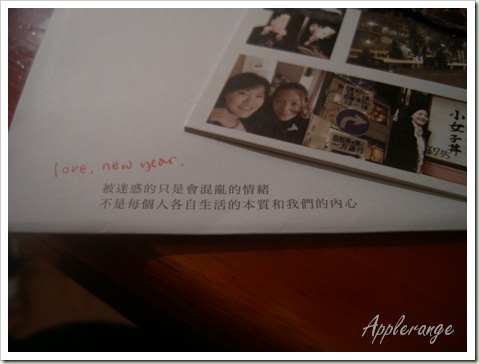 小女子丼
love, new year.
被迷惑的只是會混亂的情緒
不是每個人各自生活的本質和我們的內心
Applerange